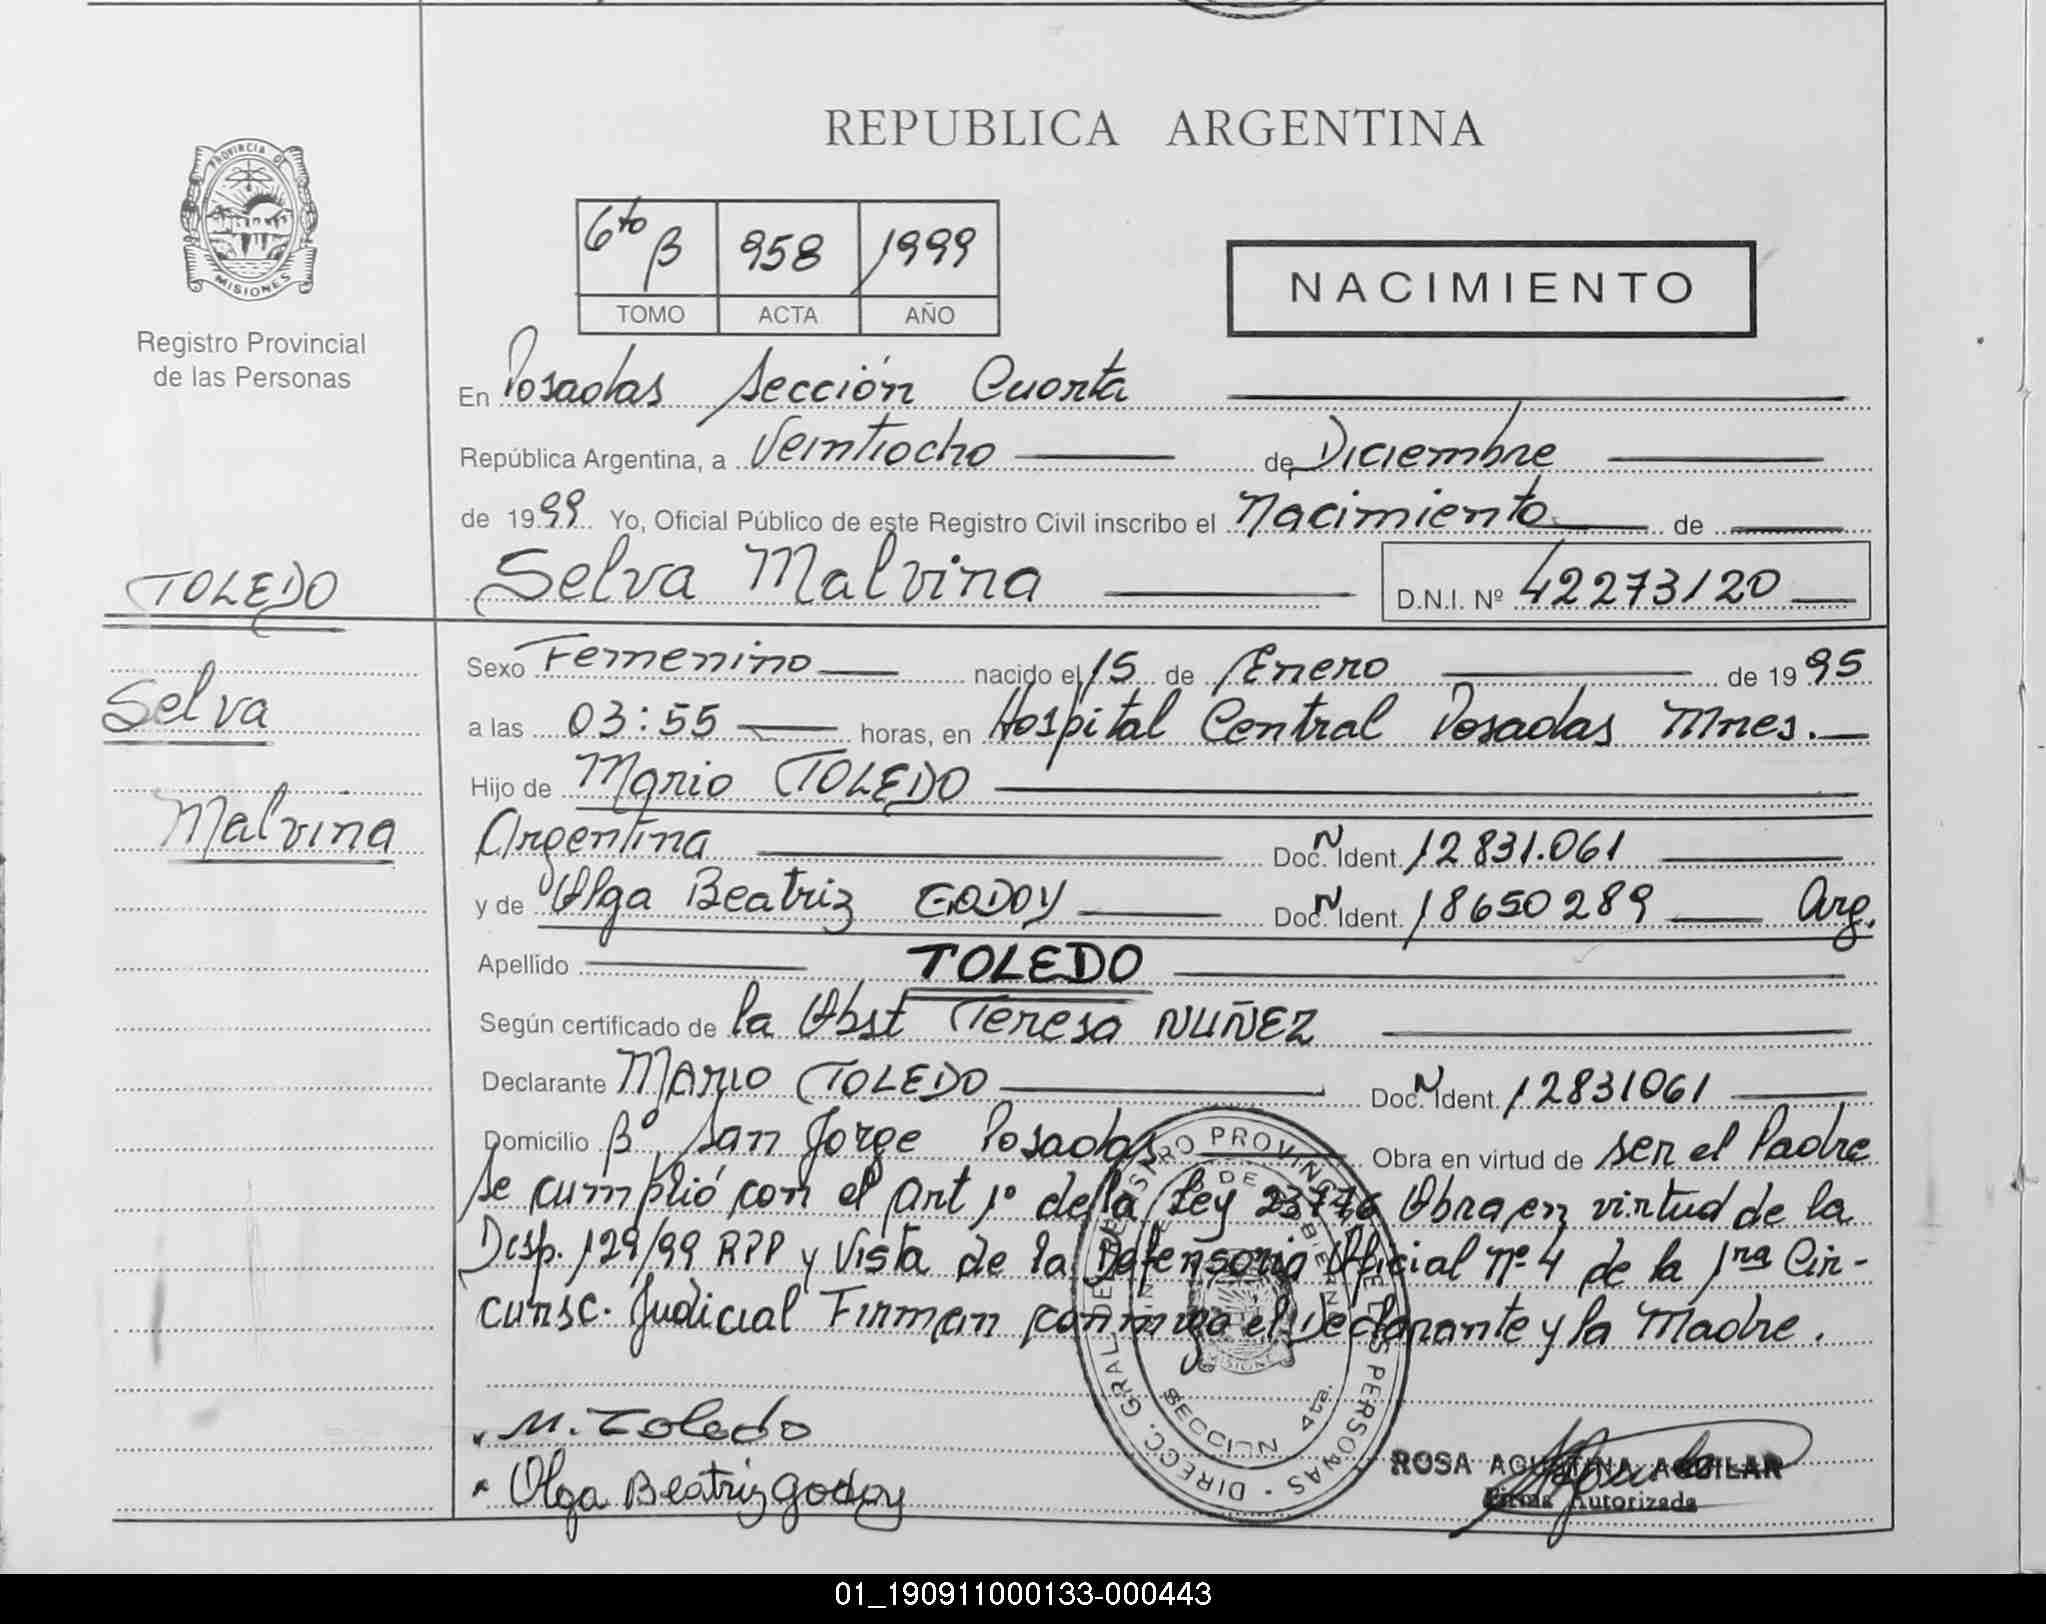 REPUBLICA ARGENTINA
PROVINCIA DE
MISIONES
Registro Provincial
de las Personas
6to B 958 1999
TOMO ACTA AÑO
NACIMIENTO
En Posadas Sección Cuarta
República Argentina, a Veintiocho de Diciembre
de 1999 Yo, Oficial Público de este Registro Civil inscribo el Nacimiento de
Selva Malvina D.N.I. Nº 42273120
TOLEDO
Selva
Malvina
Sexo Femenino nacido el 15 de Enero de 1995
a las 03:55 horas, en Hospital Central Posadas Mnes.
Hijo de Mario TOLEDO
Argentina Doc. N Ident. 12831.061
y de Olga Beatriz GODOY Doc. N Ident. 18650289 Arg.
Apellido TOLEDO
Según certificado de la Obst Teresa NUÑEZ
Declarante MARIO TOLEDO Doc. N Ident. 12831061
Domicilio Bº San Jorge Posadas Obra en virtud de ser el Padre
Se cumplió con el art 1º de la Ley 23776 Obra en virtud de la
Disp. 129/99 RPP y Vista de la Defensoria Oficial Nº 4 de la 1ra Cir-
cunsc. Judicial Firman conmigo el Declarante y la Madre.
M. Toledo
Olga Beatriz Godoy
DIRECC. GRAL. DE REGISTRO PROVINCIAL DE LAS PERSONAS
SECCION 4ta.
ROSA AGUSTINA AGUILAR
Firma Autorizada
01_190911000133-000443